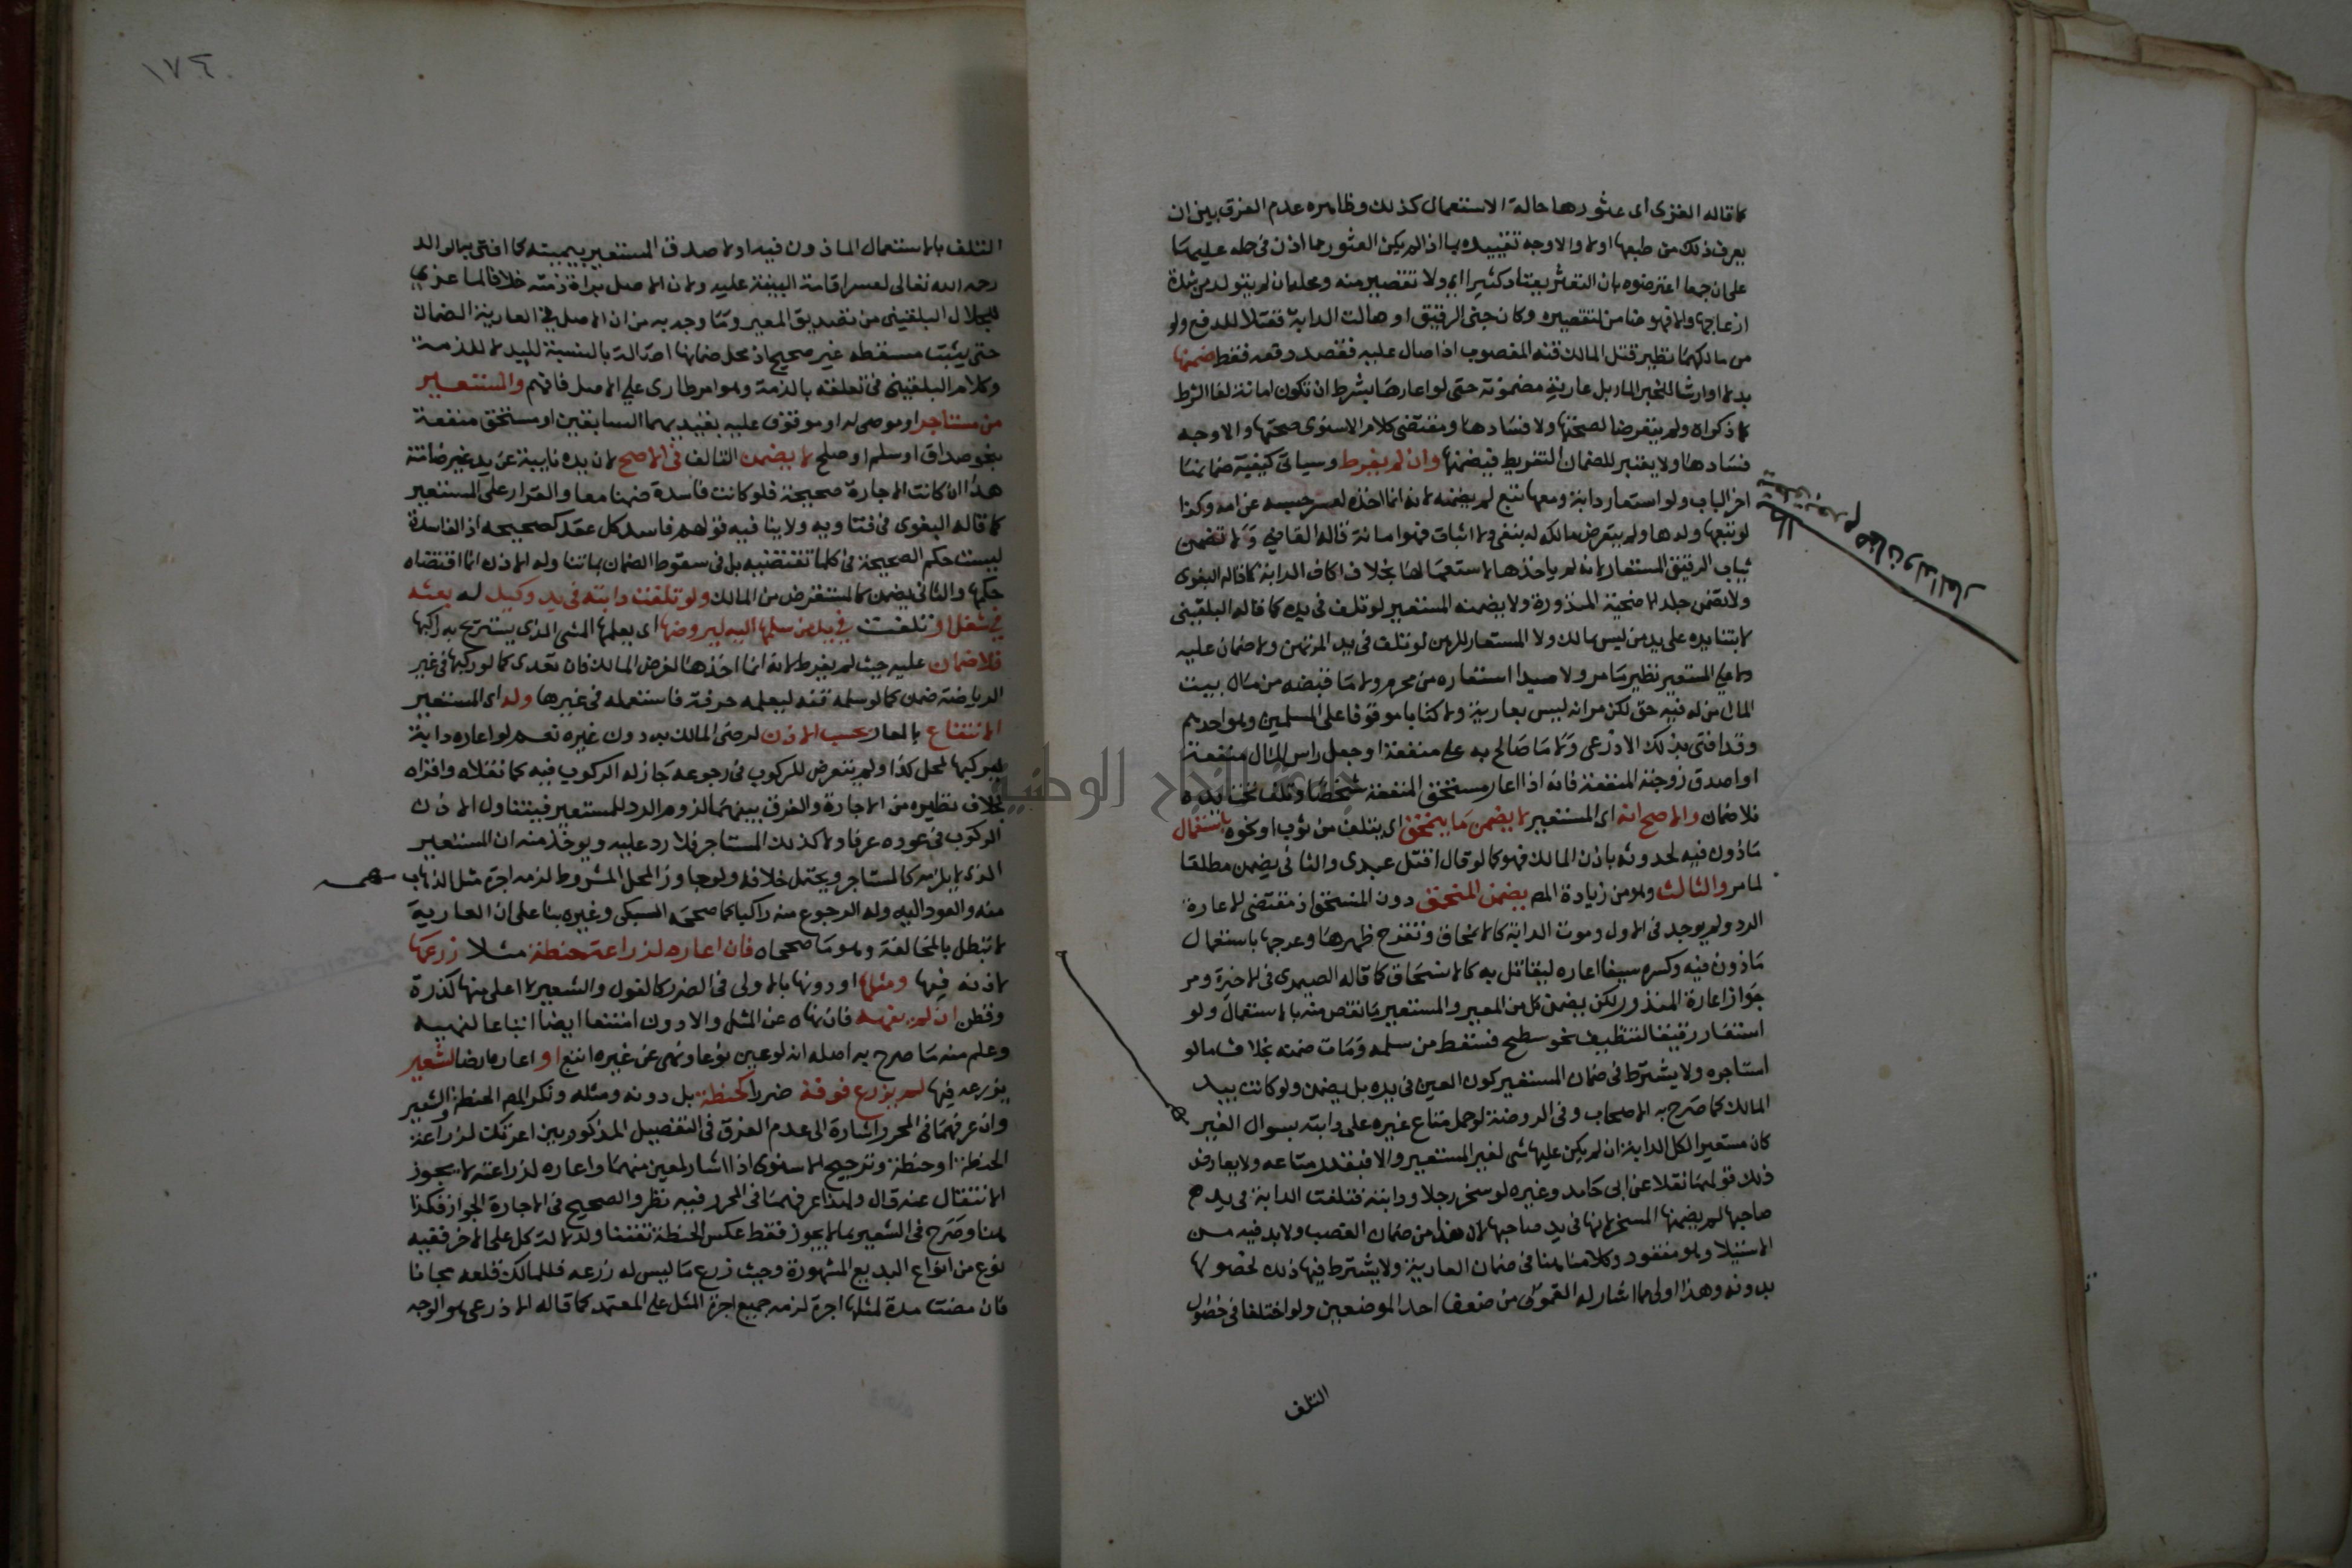 كما قاله الغزى اى عثورها حالة الاستعمال كذلك وظاهره عدم الفرق بين ان
يعرف ذلك من طبعها اولا والاوجه تقييده بما اذا لم يكن العثور مما اذن فى حمله عليها
على ان جمعا اعترضوه بان التعثر يعتاد كثيرا اى ولا تقصير منه ومحله ان لم يتولد من شدة
ازعاجها والا فهو ضامن لتقصيره وكان جنى الرقيق او صالت الدابة فقتلا للدفع ولو
من مالكهما نظير قتل المالك قنه المغصوب اذا صال عليه فقصد دفعه فقط ضمنها
بدلا او ارشا للخبر المار بل عارية مضمونة حتى لو اعارها بشرط ان تكون امانة لغا الشرط
كما ذكراه ولم يتعرضا لصحتها ولا فسادها ومقتضى كلام الاسنوى صحتها والاوجه
فسادها ولا يعتبر للضمان التفريط فيضمنها وان لم يفرط وسياتى كيفية ضمانها
اخر الباب ولو استعار دابة ومعها تبع لم يضمنه لانه انما اخذه لعسر حبسه عن امه وكذا
لو تبعها ولدها ولم يتعرض مالكه له بنفى ولا اثبات فهو امانة قاله القاضى ولا تضمن
ثياب الرقيق المستعار لانه لم ياخذها لاستعمالها بخلاف اكاف الدابة كما قاله البغوى
ولا تضمن جلد الاضحية المنذورة ولا يضمنه المستعير لو تلف فى يده كما قاله البلقينى
لابتنا يده على يد من ليس بمالك ولا المستعار للرهن لو تلف فى يد المرتهن ولا ضمان عليه
ولا على المستعير نظير ما مر ولا صيد استعاره من محرم ولا ما قبضه من مال بيت
المال من له فيه حق لكن مر انه ليس بعارية ولا كتابا موقوفا على المسلمين وهو احدهم
وقد افتى بذلك الاذرعى ولا ما صالح به على منفعة او جعل راس المال منفعة
او اصدق زوجته المنفعة فانه اذا اعار مستحق المنفعة شخصا وتلف تحت يده
فلا ضمان والاصح انه اى المستعير لا يضمن ما ينمحق اى يتلف من ثوب او نحوه باستعمال
ماذون فيه لحدوثه باذن المالك فهو كما لو قال اقتل عبدى والثانى يضمن مطلقا
لما مر والثالث وهو من زيادة المص يضمن المنمحق دون المنسحق اذ مقتضى الاعارة
الرد ولم يوجد فى الاول وموت الدابة كالانمحاق وتقرح ظهرها وعرجها باستعمال
ماذون فيه وكسره سيفا اعاره ليقاتل به كالانسحاق كما قاله الصيمرى فى الاخيرة ومر
جواز اعارة المنذور لكن يضمن كل من المعير والمستعير ما نقص منه بالاستعمال ولو
استعار رقيقا لتنظيف نحو سطح فسقط من سلمه ومات ضمنه بخلاف ما لو
استاجره ولا يشترط فى ضمان المستعير كون العين فى يده بل يضمن ولو كانت بيد
المالك كما صرح به الاصحاب وفى الروضة لو حمل متاع غيره على دابته بسوال الغير
كان مستعيرا لكل الدابة ان لم يكن عليها شى لغير المستعير والا فبقدر متاعه ولا يعارض
ذلك قولهما نقلا عن ابى حامد وغيره لو سخر رجلا ودابته فتلفت الدابة فى يد
صاحبها لم يضمنها المسخر لانها فى يد صاحبها لان هذا من ضمان الغصب ولا بد فيه من
الاستيلا وهو مفقود وكلامنا هنا فى ضمان العارية ولا يشترط فيها ذلك لحصولها
بدونه وهذا اولى مما اشار له القمولى من ضعف احد الموضعين ولو اختلفا فى حصول
التلف
١٧٤
التلف بالاستعمال الماذون فيه اولا صدق المستعير بيمينه كما افتى به الوالد
رحمه الله تعالى لعسر اقامة البينة عليه ولان الاصل براة ذمته خلافا لما عزى
للجلال البلقينى من تصديق المعير وما وجه به من ان الاصل فى العارية الضمان
حتى يثبت مسقطه غير صحيح اذ محل ضمانها اصالة بالنسبة لليد لا للذمة
وكلام البلقينى فى تعلقه بالذمة وهو امر طارى على الاصل فافهم والمستعير
من مستاجر او موصى له او موقوف عليه بقيديهما السابقين او مستحق منفعة
بنحو صداق او سلم او صلح لا يضمن التالف فى الاصح لان يده نايبة عن يد غير ضامنة
هذا ان كانت الاجارة صحيحة فلو كانت فاسدة ضمنا معا والقرار على المستعير
كما قاله البغوى فى فتاويه ولا ينافيه قولهم فاسد كل عقد كصحيحه اذ الفاسدة
ليست حكم الصحيحة فى كل ما تقتضيه بل فى سقوط الضمان بما تناوله الاذن لا بما اقتضاه
حكمها والثانى يضمن كالمستقرض من المالك ولو تلفت دابته فى يد وكيل له بعثه
فى شغل او تلفت فى يد من سلمها اليه ليروضها اى يعلمها المشى الذى يستريح به راكبها
فلا ضمان عليه حيث لم يفرط لانه انما اخذها لغرض المالك فان تعدى كما لو ركبها فى غير
الرياضة ضمن كما لو سلمه قنه ليعلمه حرفة فاستعمله فى غيرها وله اى المستعير
الانتفاع بالمعار بحسب الاذن لرضى المالك به دون غيره نعم لو اعاره دابة
ليركبها لمحل كذا ولم يتعرض للركوب فى رجوعه جاز له الركوب فيه كما نقلاه واقراه
بخلاف نظيره من الاجارة والفرق بينهما لزوم الرد للمستعير فيتناول الاذن
الركوب فى عوده عرفا ولا كذلك المستاجر فلا رد عليه ويوخذ منه ان المستعير
الذى لا يلزمه كالمستاجر ويحتمل خلافه ولو جاوز المحل المشروط لزمه اجرة مثل الذهاب
منه والعود اليه وله الرجوع منه راكبا كما صححه السبكى وغيره بنا على ان العارية
لا تبطل بالمخالفة وهو ما صححاه فان اعاره لزراعة حنطة مثلا زرعها
لاذنه فيها ومثلها او دونها بالاولى فى الضرر كالفول والشعير لا اعلى منها كذرة
وقطن ان لم ينهه فان نهاه عن المثل والادون امتنعا ايضا اتباعا لنهيه
وعلم منه ما صرح به اصله انه لو عين نوعا ونهى عن غيره اتبع او اعاره ارضا لشعير
يزرعه فيها لم يزرع فوقه ضررا كحنطة بل دونه ومثله ونكر المص الحنطة والشعير
وان عرفهما فى المحرر اشارة الى عدم الفرق فى التفصيل المذكور بين اعرتك لزراعة
الحنطة او حنطة وترجيح الاسنوى اذا اشار لمعين منهما واعاره لزراعته لا يجوز
الانتقال عنه قال ولهذا عرفهما فى المحرر فيه نظر والصحيح فى الاجارة الجواز فكذا
هنا وصرح فى الشعير بما لا يجوز فقط عكس الحنطة تفننا ولدلالة كل على الاخر ففيه
نوع من انواع البديع المشهورة وحيث زرع ما ليس له زرعه فللمالك قلعه مجانا
فان مضت مدة لمثلها اجرة لزمه جميع اجرة المثل على المعتمد كما قاله الاذرعى وهو الوجه
جامعة النجاح الوطنية